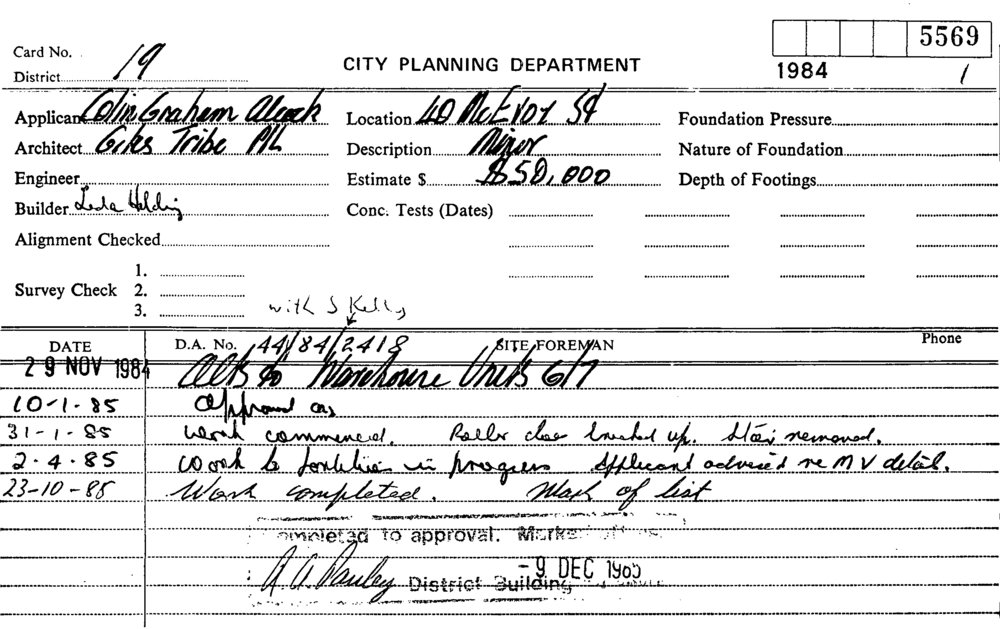 5569
Card No. 19
CITY PLANNING DEPARTMENT
1984 1
District
Applicant Colin Graham Alcock Location 40 McEvoy St Foundation Pressure
Architect Giles Tribe P/L Description Minor Nature of Foundation
Engineer Estimate $ $50,000 Depth of Footings
Builder Leda Holding Conc. Tests (Dates)
Alignment Checked
1.
Survey Check 2.
3.
with J Kelly
DATE D.A. No. 44/84/2418 SITE FOREMAN Phone
29 NOV 1984 Alts to Warehouse Units 6/7
10-1-85 Approved as
31-1-85 Work commenced. Roller door bricked up. Stair removed.
2.4.85 Work to in progress Applicant advised re MV detail.
23-10-85 Work completed. Mark of list
Completed to approval. Marked off
9 DEC 1985
District Building